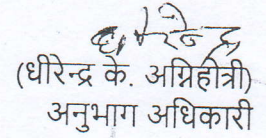 (धीरेन्द्र के. अग्निहोत्री)
अनुभाग अधिकारी